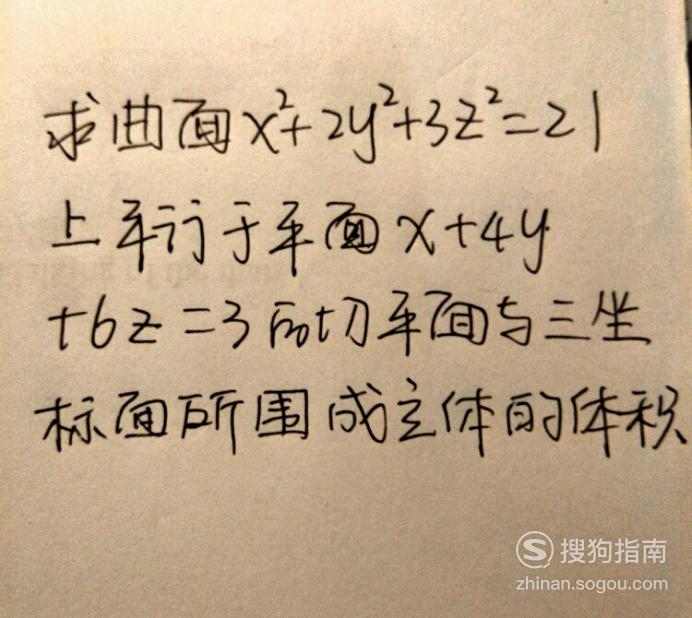 求曲面x²+2y²+3z²=21
上平行于平面x+4y
+6z=3的切平面与三坐
标面所围成立体的体积
搜狗指南
zhinan.sogou.com